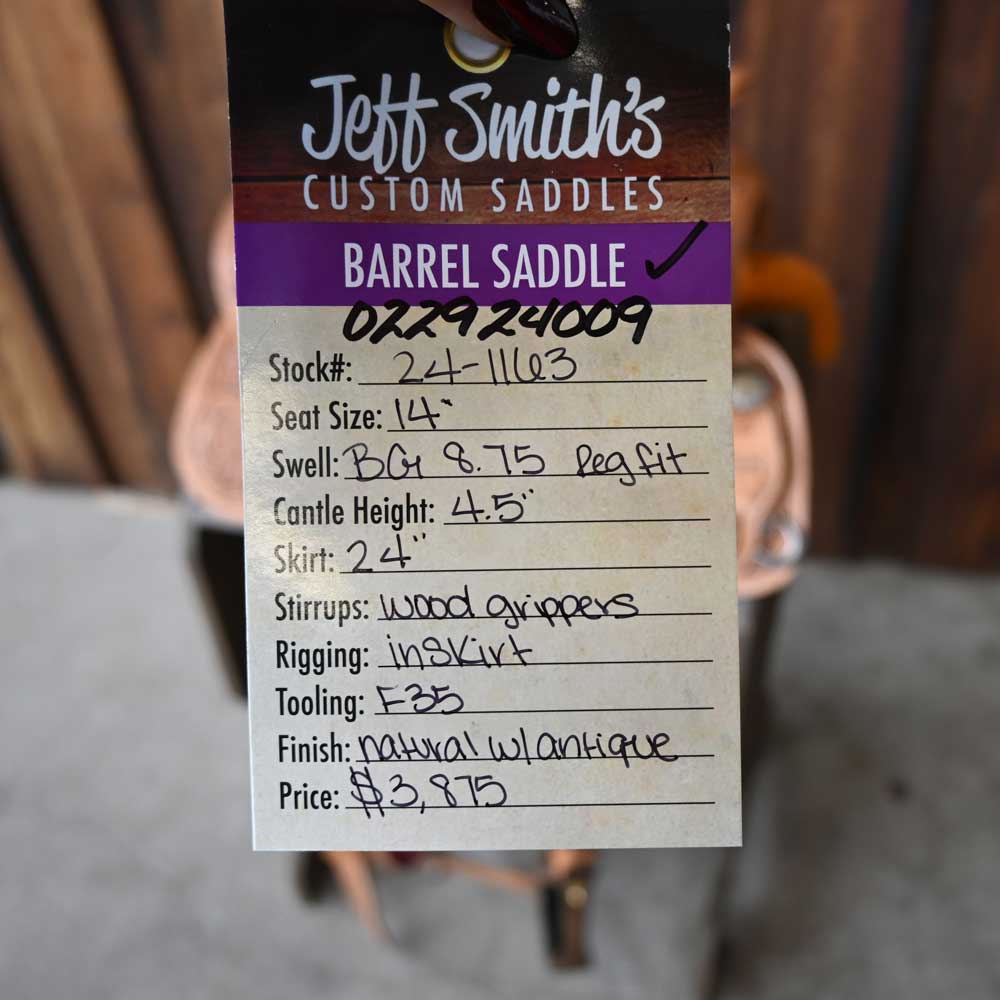 Jeff Smith's
CUSTOM SADDLES
BARREL SADDLE ✓
022924009
Stock#: 24-1163
Seat Size: 14"
Swell: BG 8.75 Regfit
Cantle Height: 4.5"
Skirt: 24"
Stirrups: wood grippers
Rigging: inskirt
Tooling: F35
Finish: natural w/antique
Price: $3,875